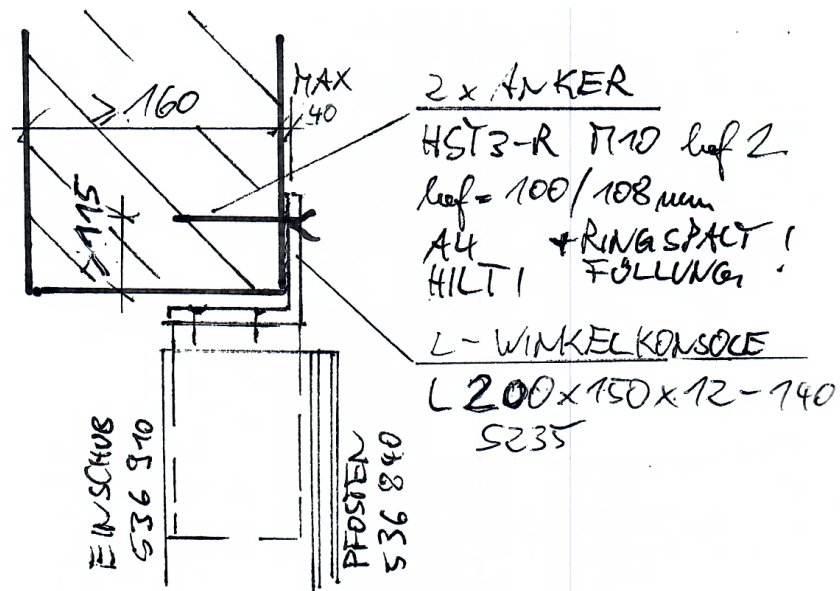 ≥ 160
MAX
40
≥ 115
2 x ANKER
HST3-R M10 hef 2
hef = 100/108 mm
A4 + RINGSPALT !
HILTI FÜLLUNG !
L-WINKELKONSOLE
L 200x150x12-140
S235
EINSCHUB
536 910
PFOSTEN
536 840